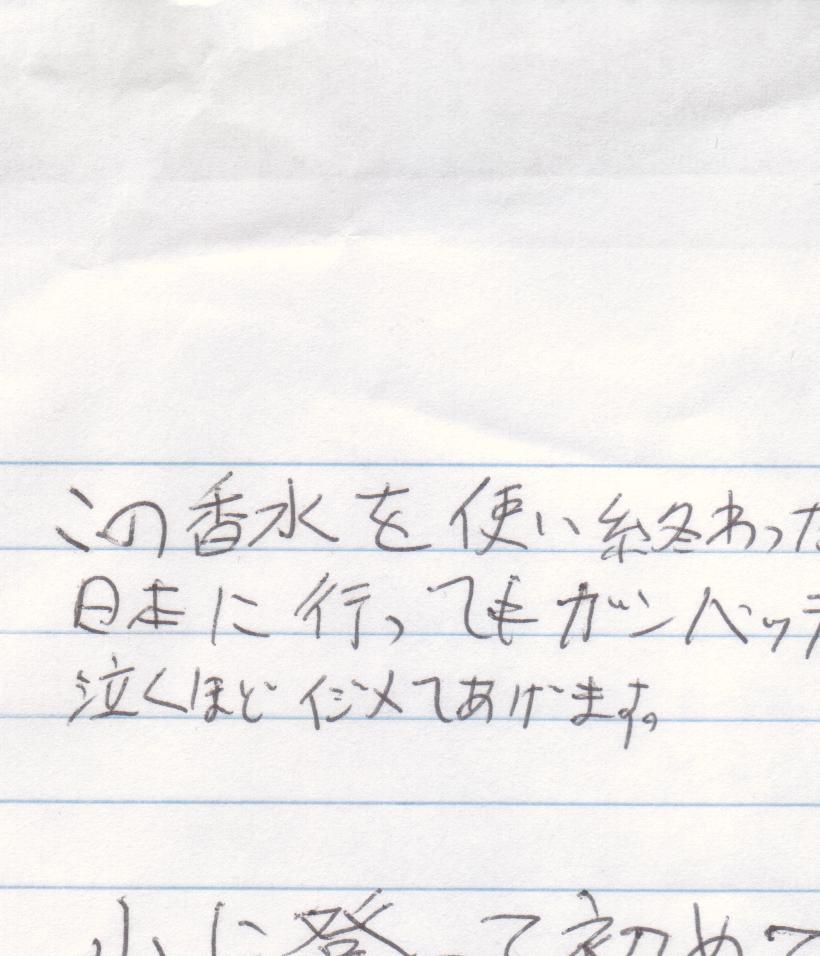 この香水を使い終わった
日本に行ってもガンバッテ
泣くほどイジメてあげます。
山に登って初めて